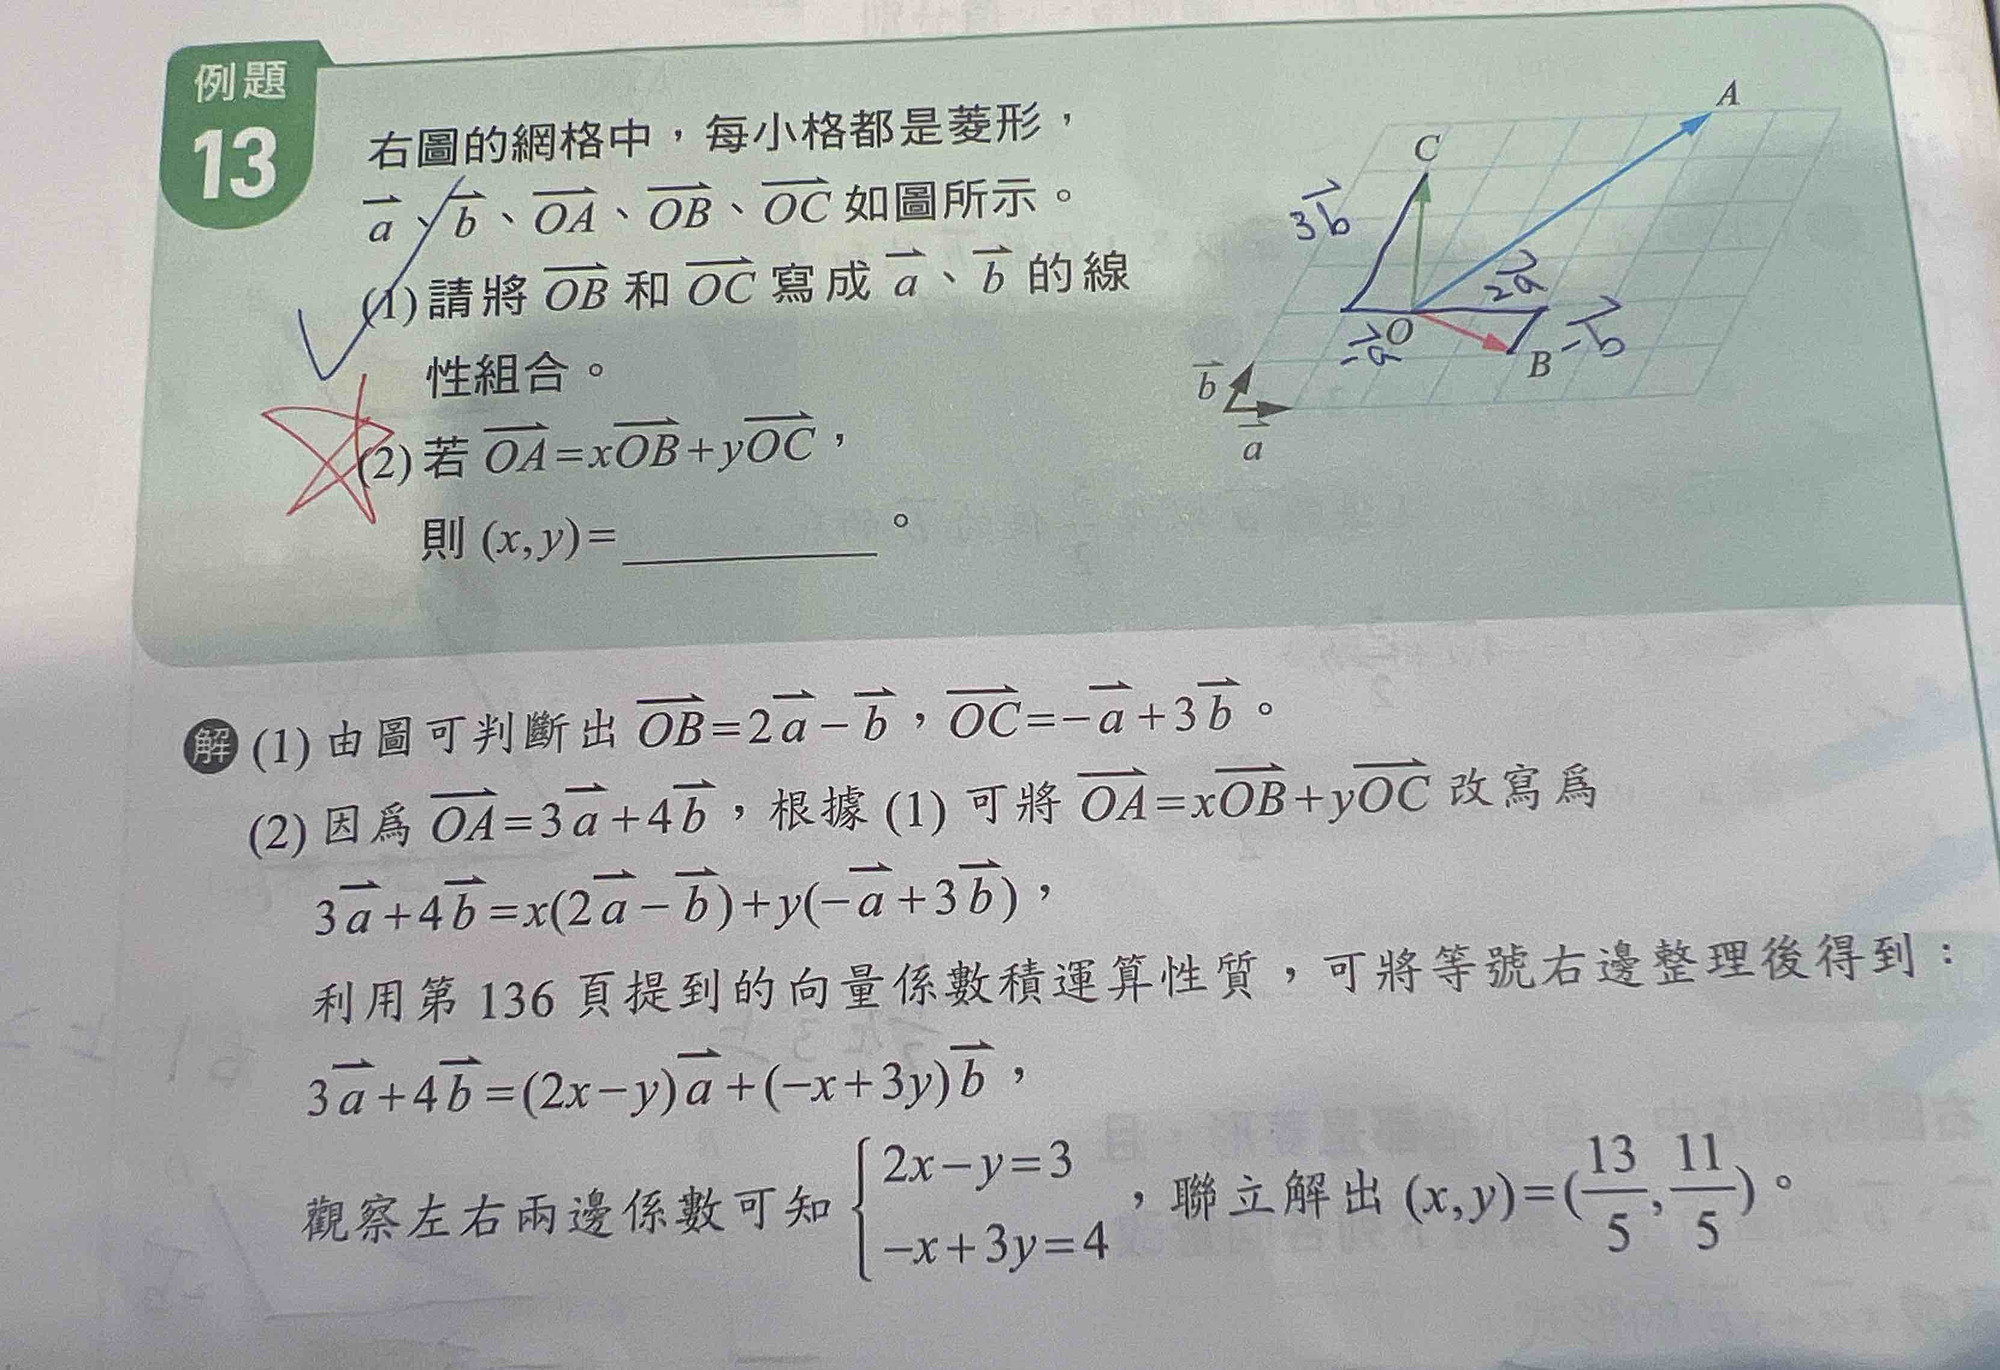 例題
13
右圖的網格中，每小格都是菱形，
a⃗、b⃗、OA⃗、OB⃗、OC⃗ 如圖所示。
(1)請將 OB⃗ 和 OC⃗ 寫成 a⃗、b⃗ 的線
性組合。
(2)若 OA⃗=xOB⃗+yOC⃗，
則 (x,y)=＿＿＿＿＿。
A
C
3b⃗
2a⃗
O
-a⃗
B
-b⃗
b⃗
a⃗
解 (1) 由圖可判斷出 OB⃗=2a⃗-b⃗，OC⃗=-a⃗+3b⃗。
(2) 因為 OA⃗=3a⃗+4b⃗，根據 (1) 可將 OA⃗=xOB⃗+yOC⃗ 改寫為
3a⃗+4b⃗=x(2a⃗-b⃗)+y(-a⃗+3b⃗)，
利用第 136 頁提到的向量係數積運算性質，可將等號右邊整理後得到：
3a⃗+4b⃗=(2x-y)a⃗+(-x+3y)b⃗，
觀察左右兩邊係數可知 { 2x-y=3 , -x+3y=4，聯立解出 (x,y)=(13/5, 11/5)。